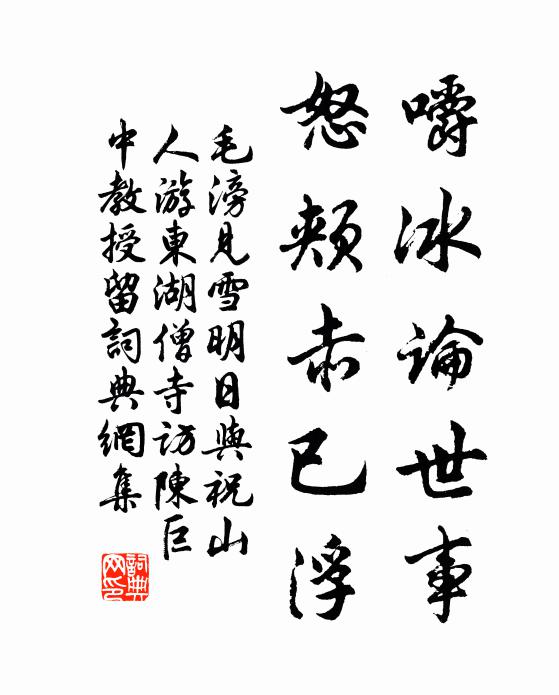 嚼冰論世事
怒頰赤已浮
毛滂見雪明日與祝山
人游東湖僧寺訪陳巨
中教授留詞典網集
詞典
网印